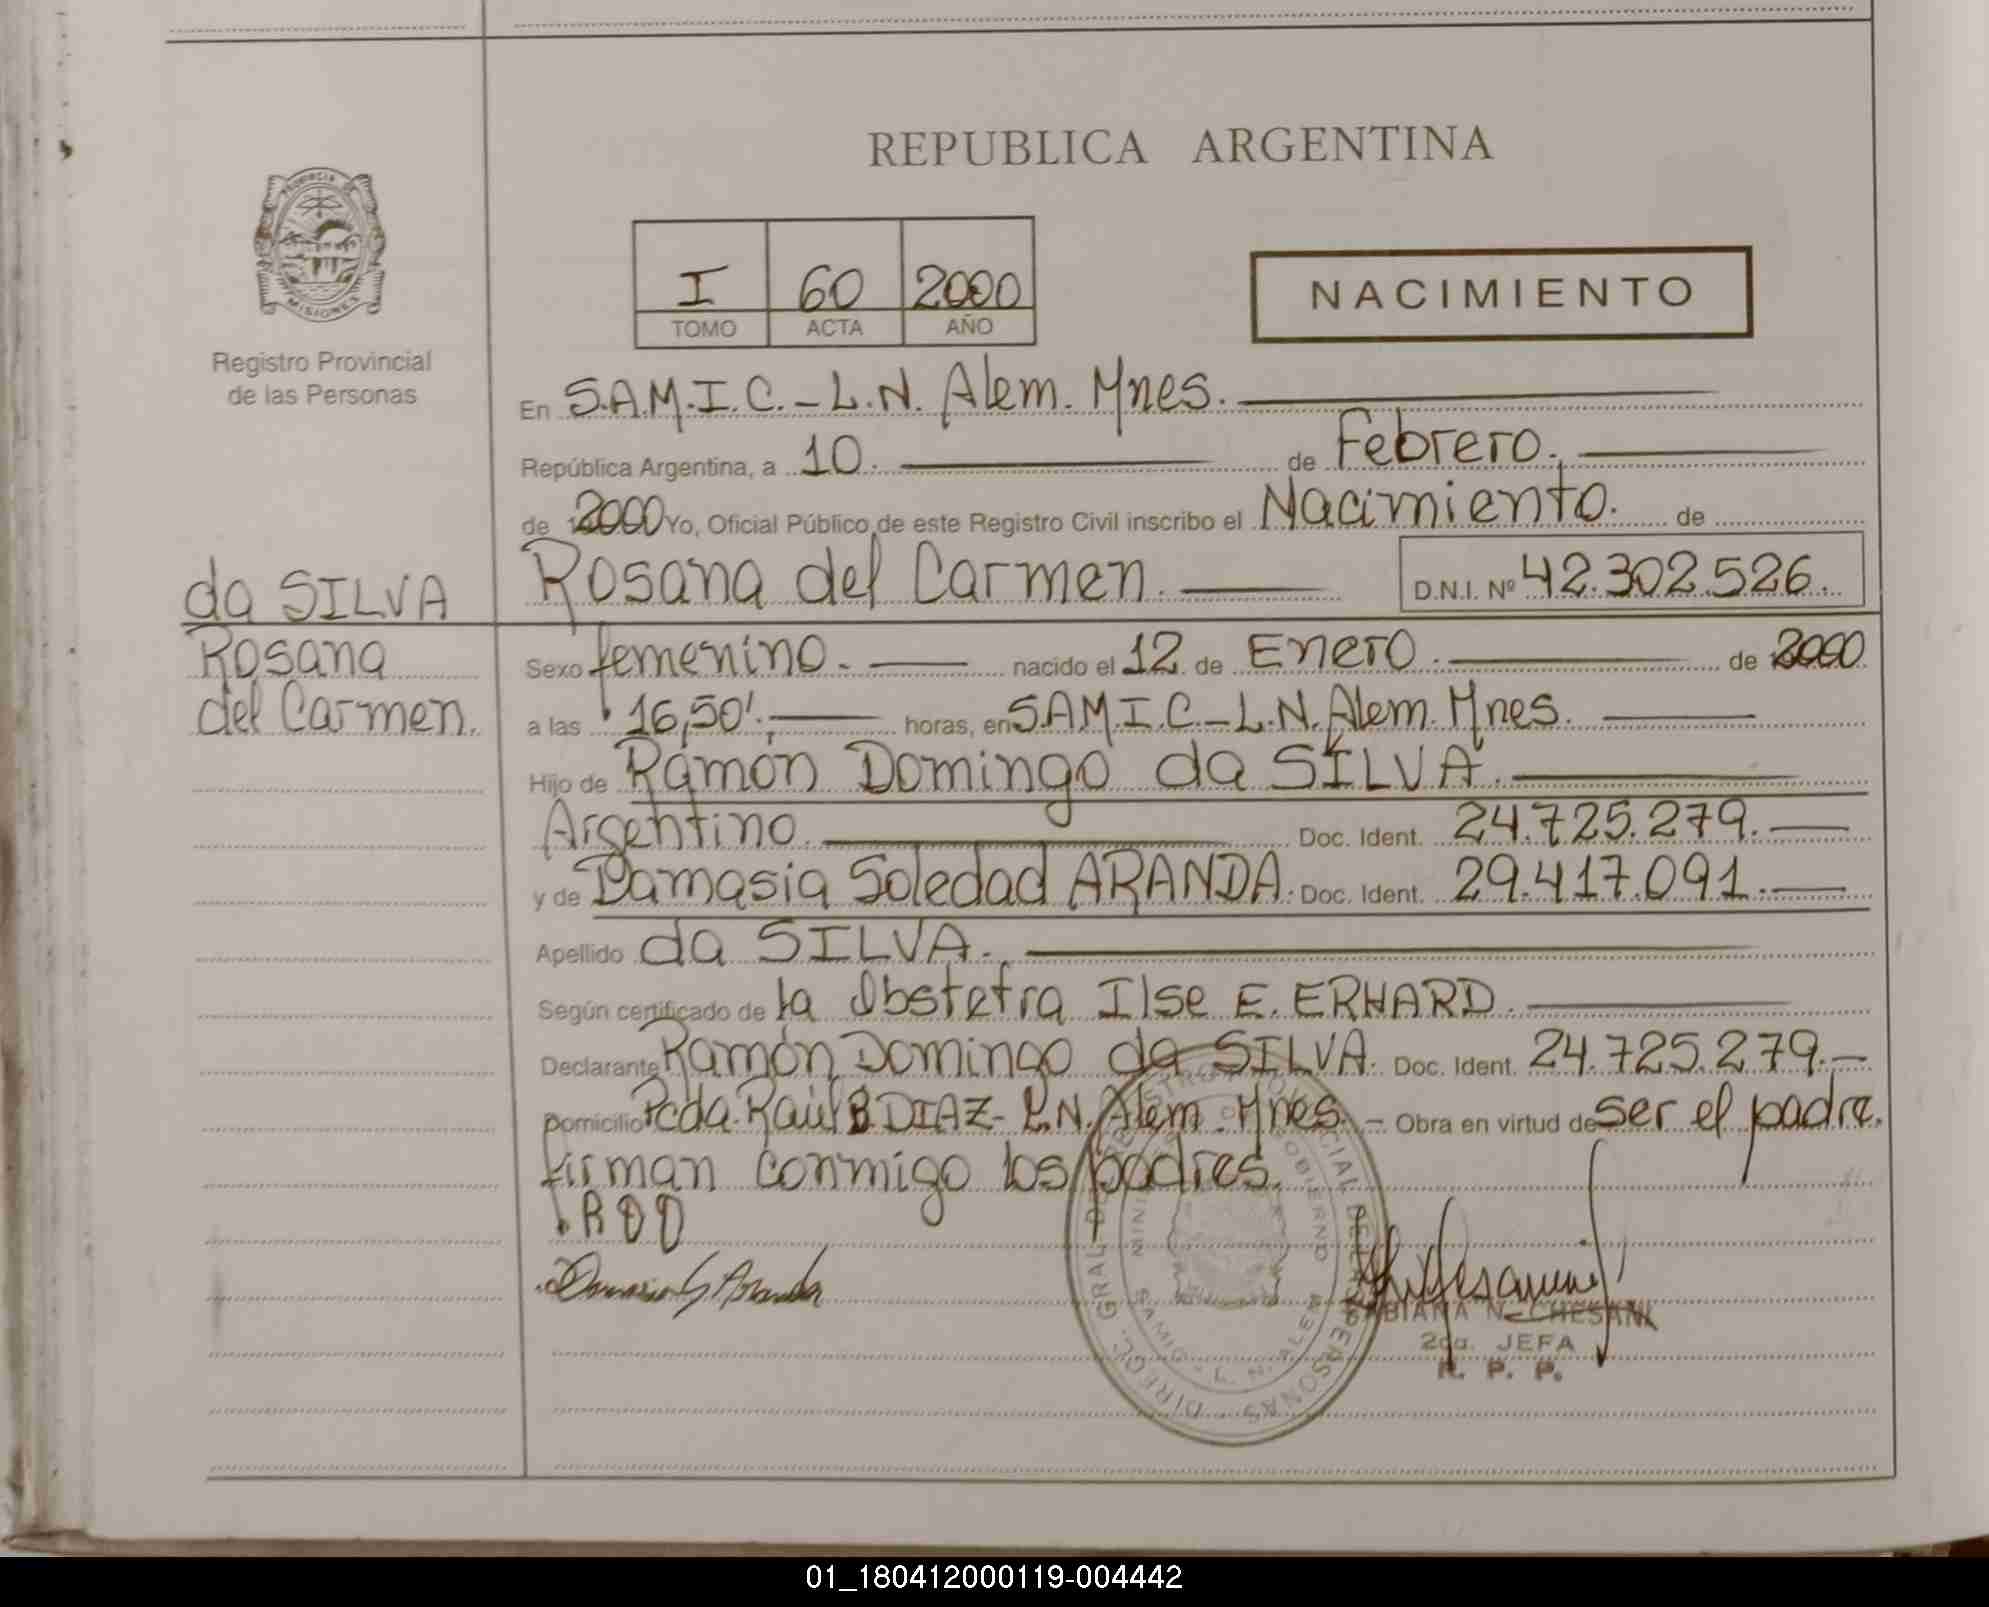 REPUBLICA ARGENTINA
PROVINCIA DE
MISIONES
Registro Provincial
de las Personas
I 60 2000
TOMO ACTA AÑO
NACIMIENTO
En S.A.M.I.C.-L.N. Alem. Mnes.
República Argentina, a 10. de Febrero.
de 2000 Yo, Oficial Público de este Registro Civil inscribo el Nacimiento. de
Rosana del Carmen. D.N.I. Nº 42.302.526.
da SILVA
Rosana
del Carmen.
Sexo femenino. nacido el 12 de Enero. de 2000
a las 16,50'. horas, en S.A.M.I.C.-L.N. Alem. Mnes.
Hijo de Ramón Domingo da SILVA.
Argentino. Doc. Ident. 24.725.279.
y de Damasia Soledad ARANDA. Doc. Ident. 29.417.091.
Apellido da SILVA.
Según certificado de la Obstetra Ilse E. ERHARD.
Declarante Ramón Domingo da SILVA. Doc. Ident. 24.725.279.-
Domicilio Pcda. Raúl B DIAZ- L.N. Alem. Mnes.- Obra en virtud de ser el padre.
firman conmigo los padres.
R D D
Damasia S Aranda
DIREC. GRAL. DEL REGISTRO PROVINCIAL DE LAS PERSONAS
GOBIERNO
SAMIC - L. N. ALEM
FABIANA N. CHESANI
2da. JEFA
R. P. P.
01_180412000119-004442